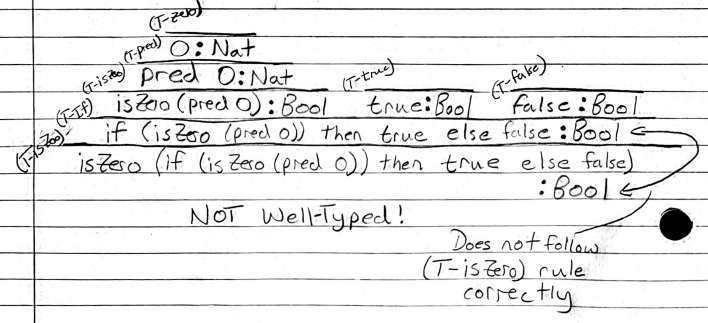 (T-zero)
(T-pred) 0:Nat
(T-isZero) pred 0:Nat (T-true) (T-false)
(T-If) isZero (pred 0) : Bool true:Bool false:Bool
(T-isZero) if (isZero (pred 0)) then true else false : Bool
isZero (if (isZero (pred 0)) then true else false)
: Bool
NOT Well-Typed!
Does not follow
(T-isZero) rule
correctly